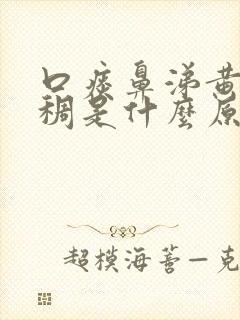 口痰鼻涕黄
稠是什麼原
超模海薈—克